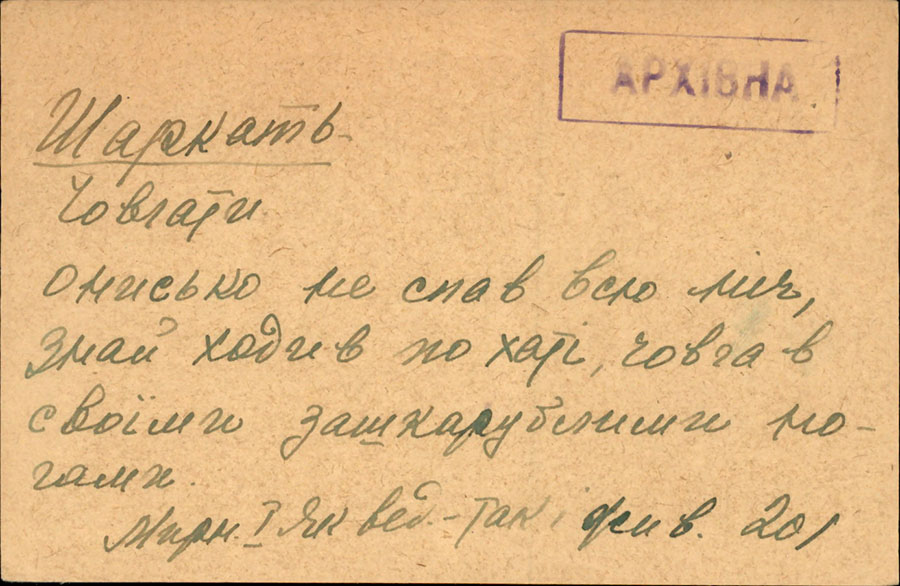 АРХІВНА
Шаркать
Човгати
Онисько не спав всю ніч,
знай ходив по хаті, човгав
своїми зашкарублими но-
гами.
Мирн. І Як вед.-такі жив. 201